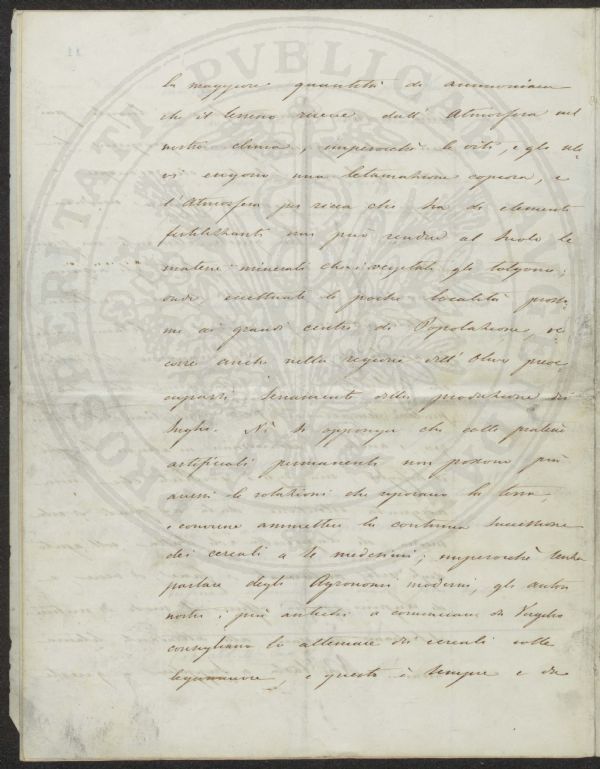 la maggiore quantità di ammoniaca
che il terreno riceve dall' Atmosfera nel
nostro clima, imperocchè le viti, e gli uli
vi esigono una letamazione copiosa, e
l'Atmosfera per ricca che sia di elementi
fertilizzanti non può rendere al suolo le
materie minerali che i vegetali gli tolgono;
onde, eccettuate le poche località prossi
me ai grandi centri di Popolazione, oc
corre anche nella regione dell' Olivo preoc
cuparsi seriamente della produzione dei
Foraggi. Nè si opponga che colle praterie
artificiali permanenti non possono più
aversi le rotazioni che riposano la terra,
e conviene ammettere la continua successione
dei cereali a se medesimi; imperocchè senza
parlare degli Agronomi moderni, gli autori
nostri i più antichi a cominciare da Virgilio
consigliano lo alternare dei cereali colle
leguminose, e questo è sempre e da
PROSPERITATI PUBLICAE AUGENDAE